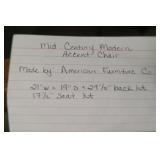 Mid Century Modern
Accent Chair
Made by: American Furniture Co
21" W x 19" D x 29½" back ht
17½" seat ht